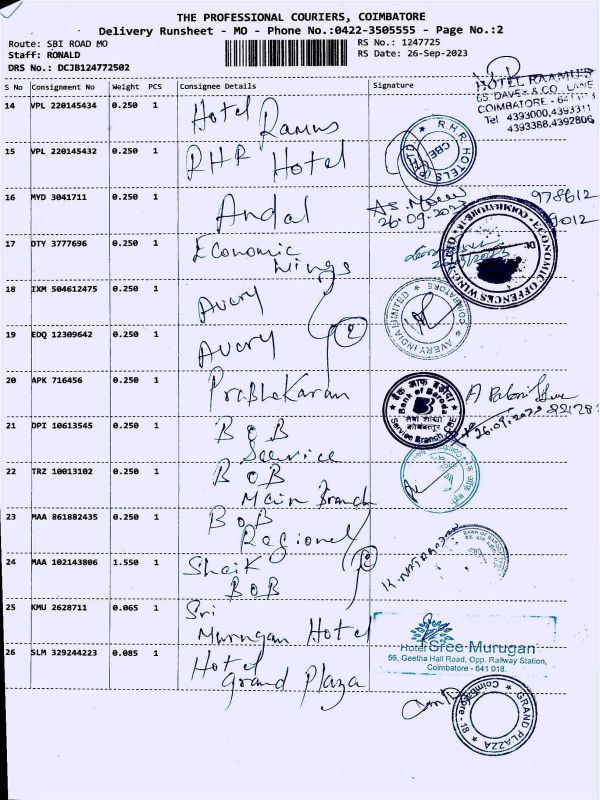 THE PROFESSIONAL COURIERS, COIMBATORE
Delivery Runsheet - MO - Phone No.:0422-3505555 - Page No.:2
Route: SBI ROAD MO RS No.: 1247725
Staff: RONALD RS Date: 26-Sep-2023
DRS No.: DCJB124772502
S No Consignment No Weight PCS Consignee Details Signature
HOTEL RAAMUS
65, DAVEY & CO. LANE
COIMBATORE - 641 018
Tel 4393000,4393311
4393388,4392806
14 VPL 220145434 0.250 1 Hotel Ramus
15 VPL 220145432 0.250 1 RHR Hotel
R.H.R. HOTELS (P) LTD CBE
16 MYD 3041711 0.250 1 Andal
26.09.2023
978612
9012
17 DTY 3777696 0.250 1 Economic Wings
ECONOMIC OFFENCES WING-II COIMBATORE
18 IXM 504612475 0.250 1 Avery
AVERY INDIA LIMITED COIMBATORE
19 EDQ 12309642 0.250 1 Avery
2
20 APK 716456 0.250 1 Prabhakaran
बैंक ऑफ़ बड़ौदा
Bank of Baroda
सेवा शाखा
कोयंबत्तूर
Service Branch, CBE
21 DPI 10613545 0.250 1 BoB Service
22 TRZ 10013102 0.250 1 BoB Main Branch
23 MAA 861882435 0.250 1 BoB Regional
24 MAA 102143806 1.550 1 Shaik BOB
2
K NATARAJAN
25 KMU 2628711 0.065 1 Sri Murugan Hotel
Hotel Sree Murugan
56, Geetha Hall Road, Opp. Railway Station,
Coimbatore - 641 018.
26 SLM 329244223 0.085 1 Hotel Grand Plaza
GRAND PLAZZA Coimbatore - 18